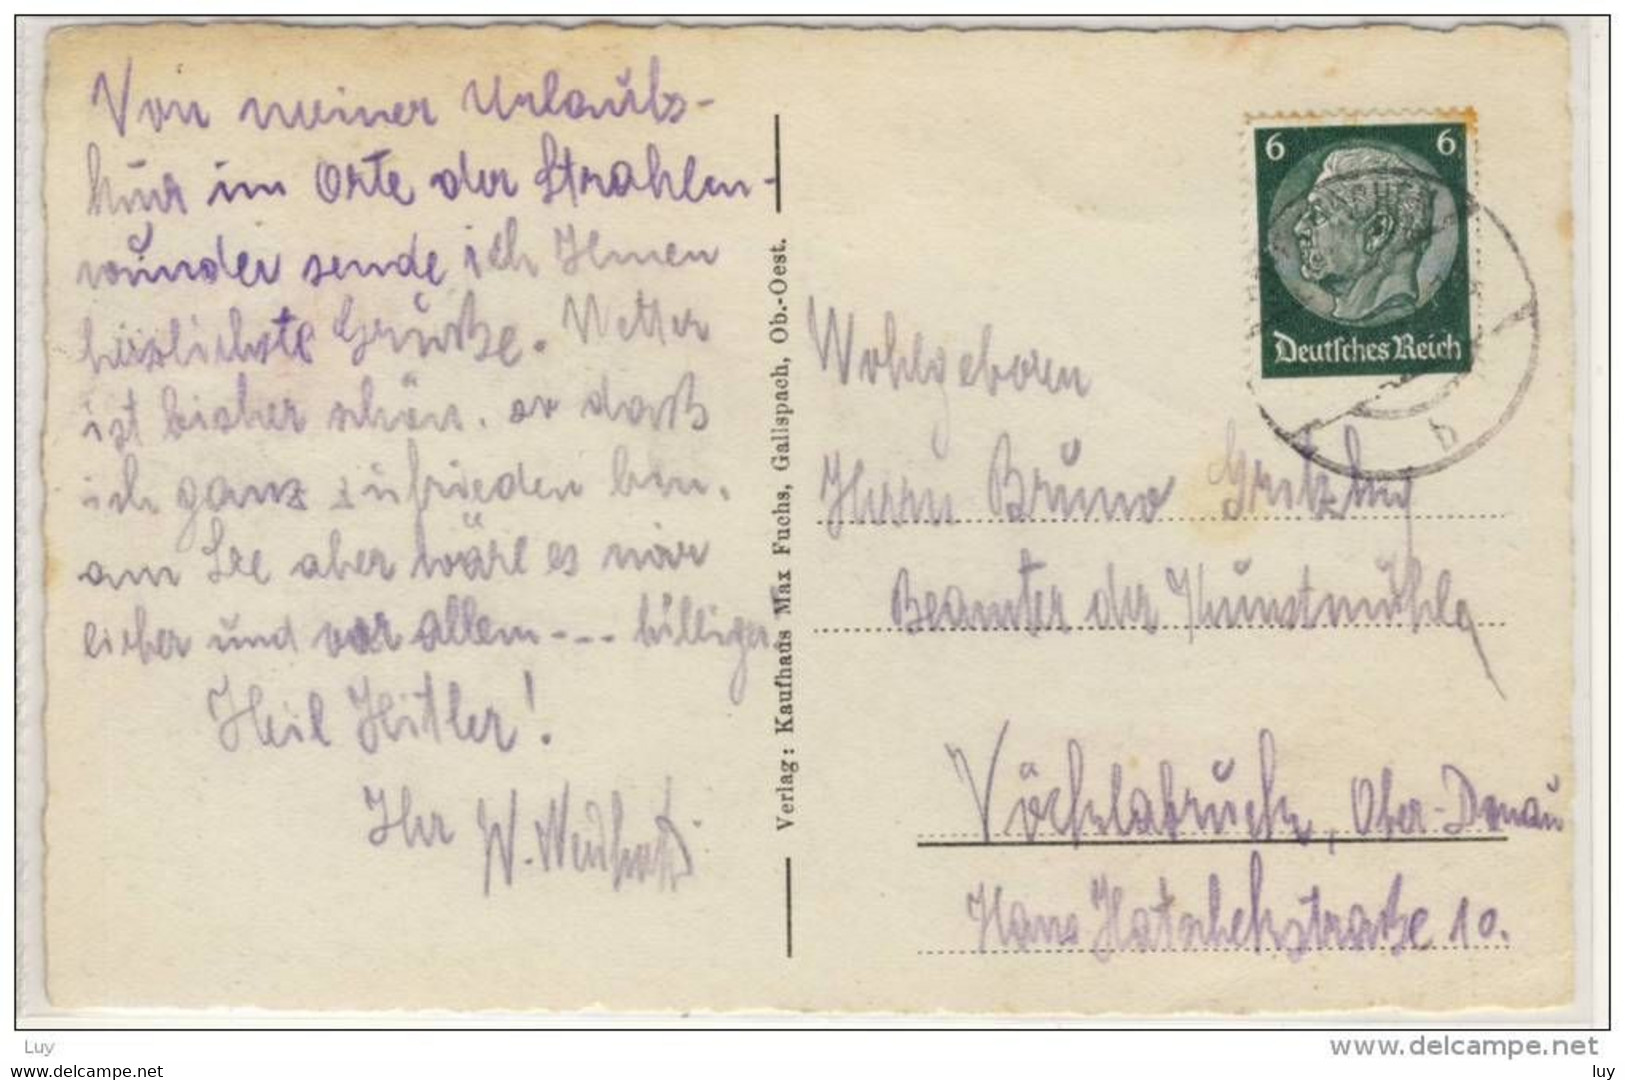 Von meiner Urlaubs-
kur im Orte der Strahlen-
wunder sende ich Ihnen
herzlichste Grüße. Wetter
ist bisher schön, so daß
ich ganz zufrieden bin.
am See aber wäre es mir
lieber und vor allem --- billiger.
Heil Hitler!
Ihr W.
Verlag: Kaufhaus Max Fuchs, Gallspach, Ob.-Oest.
6 6
Deutsches Reich
b
Wohlgeboren
Herrn Bruno
Beamter der Kunstmühle
Vöcklabruck, Ober-Donau
Hans Hatschekstraße 10.
Luy
www.delcampe.net
www.delcampe.net
luy